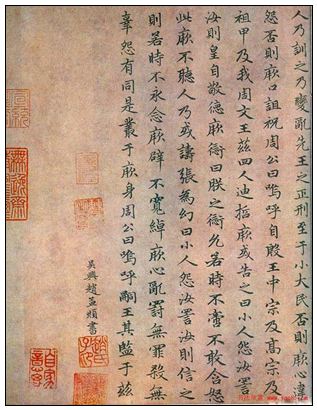 人乃訓之乃變亂先王之正刑至于小大民否則厥心違
怨否則厥口詛祝周公曰嗚呼自殷王中宗及高宗及
祖甲及我周文王茲四人迪哲厥或告之曰小人怨汝詈
汝則皇自敬德厥愆曰朕之愆允若時不啻不敢含怒
此厥不聽人乃或譸張為幻曰小人怨汝詈汝則信之
則若時不永念厥辟不寬綽厥心亂罰無罪殺無
辜怨有同是叢于厥身周公曰嗚呼嗣王其監于茲
吳興趙孟頫書